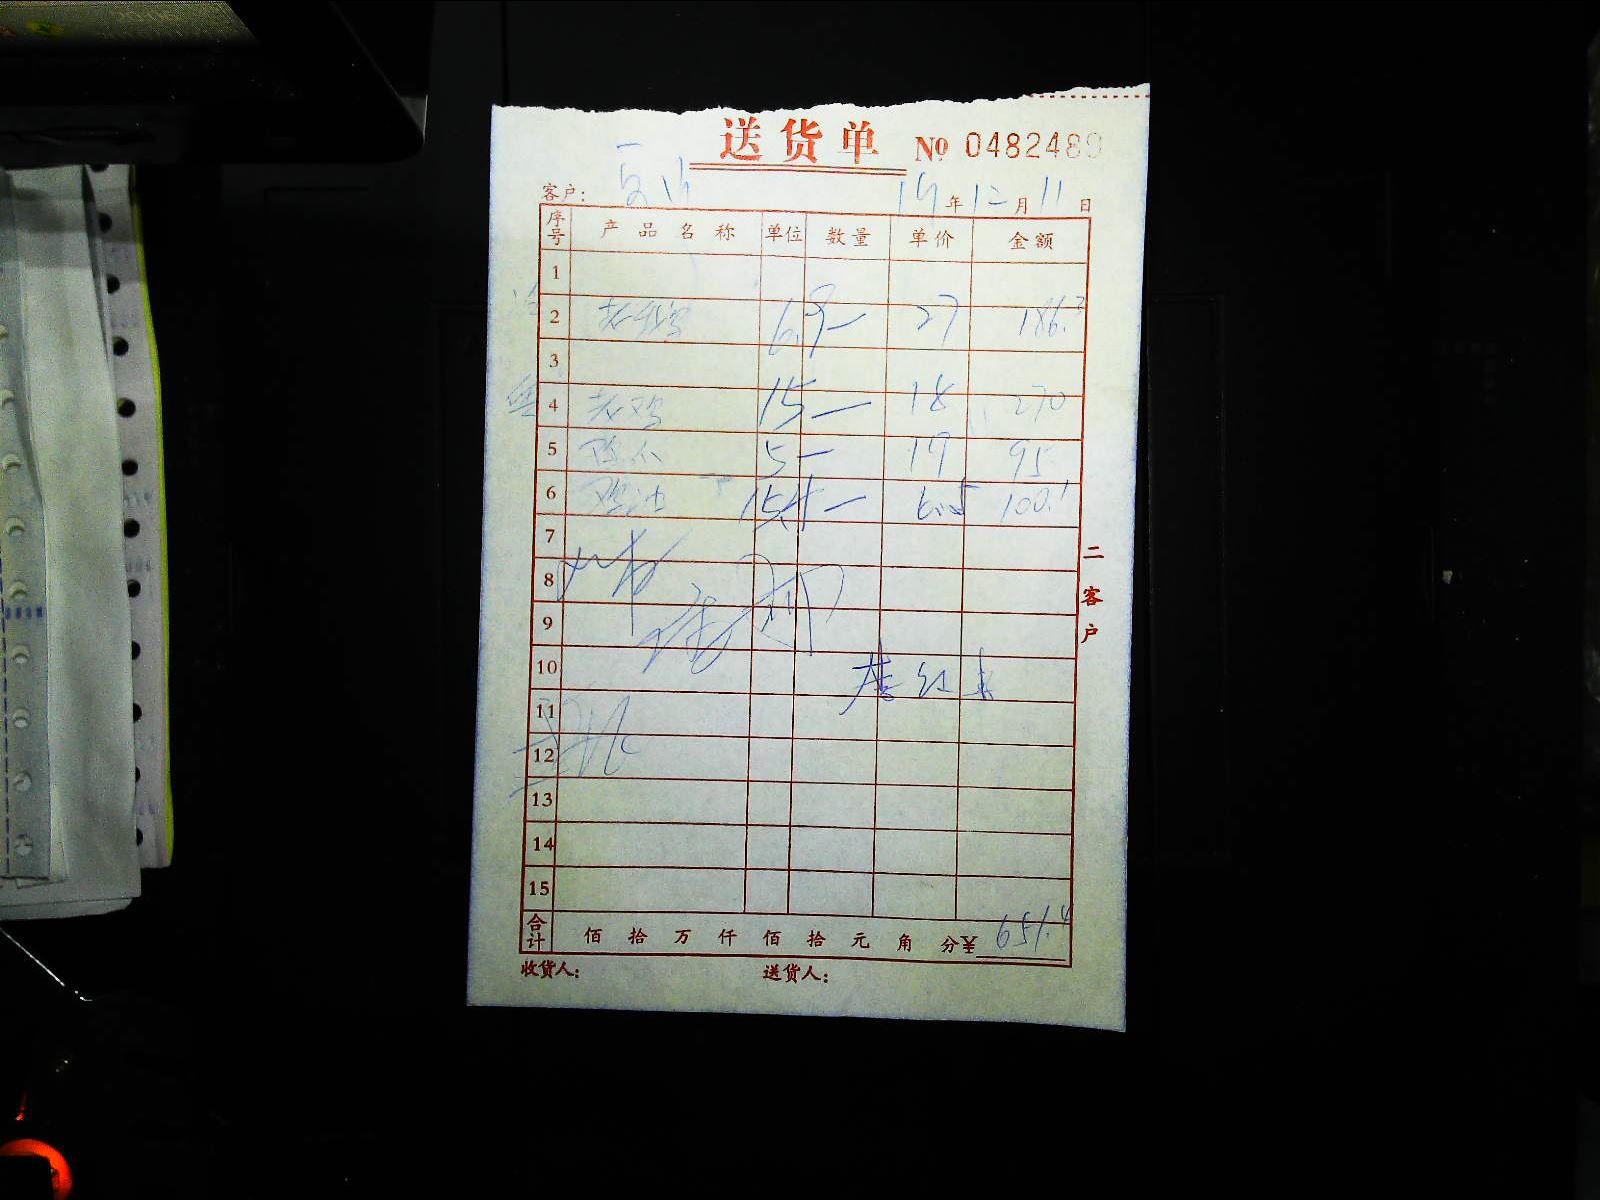 送货单 № 0482489
客户: 19年12月11日
序号 产品名称 单位 数量 单价 金额
1
2 6.9— 27 186.3
3
4 老鸡 15— 18 270
5 5— 19 95
6 鸡油 15.4— 6.5 100.1
7
8
9
10
11
12
13
14
15
合计 佰 拾 万 仟 佰 拾 元 角 分¥ 651.4
收货人: 送货人:
二客户